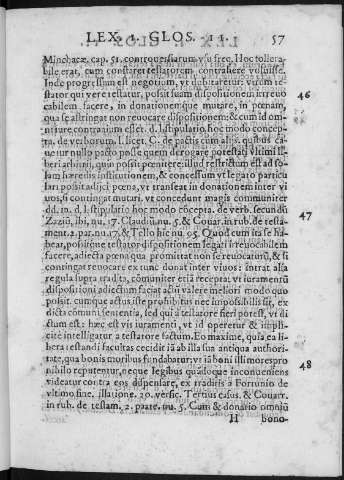 LEX. I. GLOS. II. 57
Minchacæ. cap. 51. controuersiarum vsu freq. Hoc tollera
bile erat, cum constaret testatorem contrahere voluisse.
Inde progressum est negotium, vt dubitaretur: vtrum tes-
tator qui vere testatur, possit suam dispositionem irreuo 46
cabilem facere, in donationemque mutare, in pœnam,
qua se astringat non reuocare dispositionem: & cum id om-
nium re contrarium esset. d. l. stipulatio hoc modo concep-
ta. de verborum. l. licet. C. de pactis cum alijs. quibus ca
uetur nullo pacto posse quem abrogare potestati vltimi li-
beri arbitrij, quin possit pœnitere: illud restrictum est ad so-
lam hæredis institutionem, & concessum vt legato particu
lari possit adijci pœna, vt transeat in donationem inter vi
uos, si contingat mutari. vt concedunt magis communiter
dd. in. d. l. stipulatio hoc modo cõcepta. de verb. secundũ 47
Zaziũ, ibi, nu. 17. Claudiũ nu. 5. & Couar. in rub. de testa-
ment. 2. par. nu. 17. & Tello hic nu. 95. Quod cum ita se ha-
beat, possitque testator dispositionem legati irreuocabilem
facere, adiecta pœna qua promittat non se reuocaturũ, & si
contingat reuocare ex tunc donat inter viuos: intrat alia
regula supra tradita, communiter etiã recepta: vt iuramentũ
dispositioni adiectum faciat actũ valere meliori modo quo
possit. cumque actus isse prohibitus nec impossibilis sit, ex
dicta cõmuni sententia, sed qui à testatore fieri potest, vt di
ctum est: hæc est vis iuramenti, vt id operetur & impli-
cite intelligatur a testatore factum. Eo maxime, quia ea li
bera testandi facultas cecidit iã ab illa sua antiqua authori-
tate, qua bonis moribus fundabatur: vt iã boni illi mores pro 48
nihilo reputentur, neque legibus quãdoque inconueniens
videatur contra eos dispensare, ex traditis à Fortunio de
vltimo fine. illatione. 20. versic. Tertius casus. & Couarr.
in rub. de testam. 2. parte. nu. 5. Cum & donatio omniũ
H bono-